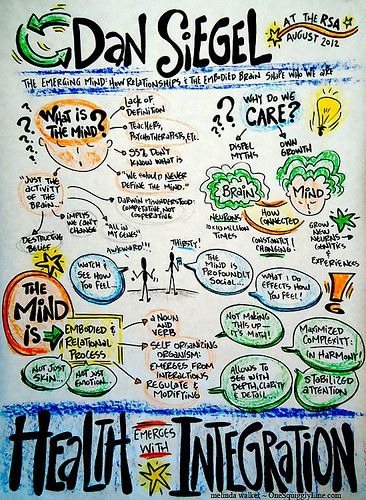 DAN SIEGEL
AT THE RSA
AUGUST 2012
THE EMERGING MIND: HOW RELATIONSHIPS & THE EMBODIED BRAIN SHAPE WHO WE ARE
WHAT IS
THE MIND?
LACK OF
DEFINITION
TEACHERS,
PSYCHOTHERAPISTS, ETC.
95% DON'T
KNOW WHAT IS
"WE SHOULD NEVER
DEFINE THE MIND."
WHY DO WE
CARE?
DISPEL
MYTHS
OWN
GROWTH
"JUST THE
ACTIVITY
OF THE
BRAIN..."
IMPLYS
WE CAN'T
CHANGE
DESTRUCTING
BELIEF
DARWIN MISUNDERSTOOD:
COMPETITIVE, NOT
COOPERATING
"ALL IN
MY GENES"
BRAIN
MIND
NEURONS
10x10 MILLION
TIMES
HOW
CONNECTED
CONSTANTLY
CHANGING!
GROW
NEW
NEURONS
GENETICS
&
EXPERIENCES
AWKWARD!!!
THIRSTY!
WATCH &
SEE HOW
YOU FEEL
THE
MIND IS
PROFOUNDLY
SOCIAL...
WHAT I DO
EFFECTS HOW
YOU FEEL!
THE
MIND
IS
EMBODIED &
RELATIONAL
PROCESS
A NOUN
AND
VERB
SELF ORGANIZING
ORGANISM:
EMERGES FROM
INTERACTIONS
REGULATE &
MODIFYING
NOT JUST
SKIN...
NOT JUST
EMOTION...
NOT MAKING
THIS UP—
IT'S MATH!
MAXIMIZED
COMPLEXITY:
IN HARMONY!
ALLOWS TO
SEE WITH
DEPTH, CLARITY
& DETAIL
STABILIZED
ATTENTION
HEALTH EMERGES WITH INTEGRATION
melinda walker ~ OneSquigglyLine.com